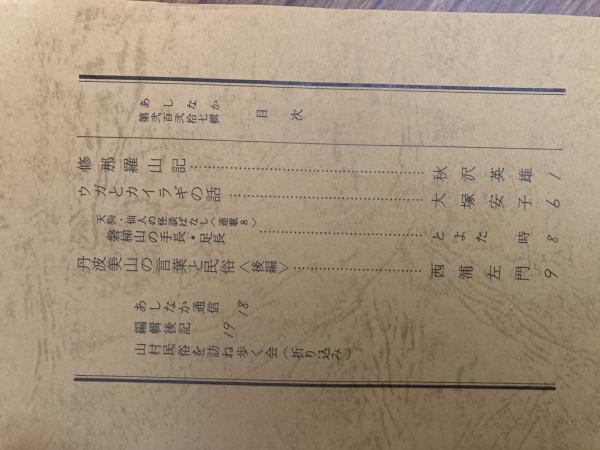 あしなか
第弐百弐拾七輯
目次
修那羅山記 秋沢英雄 1
ウガとカイラギの話 大塚安子 6
天狗・仙人の怪談ばなし〈連載8〉
磐梯山の手長・足長 とよた時 8
丹波美山の言葉と民俗〈後編〉 西浦左門 9
あしなか通信 18
編輯後記 19
山村民俗を訪ね歩く会〈折り込み〉